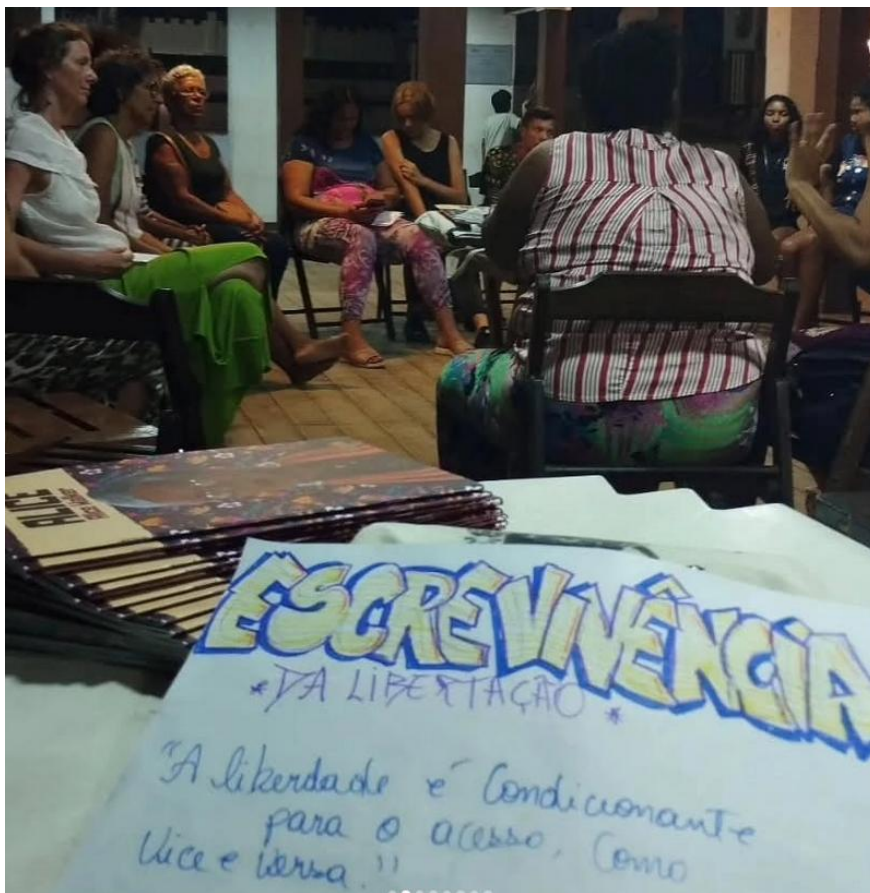 ALICE
ESCREVIVÊNCIA
*DA LIBERTAÇÃO*
"A liberdade é Condicionante
para o acesso, Como
Vice e Versa."